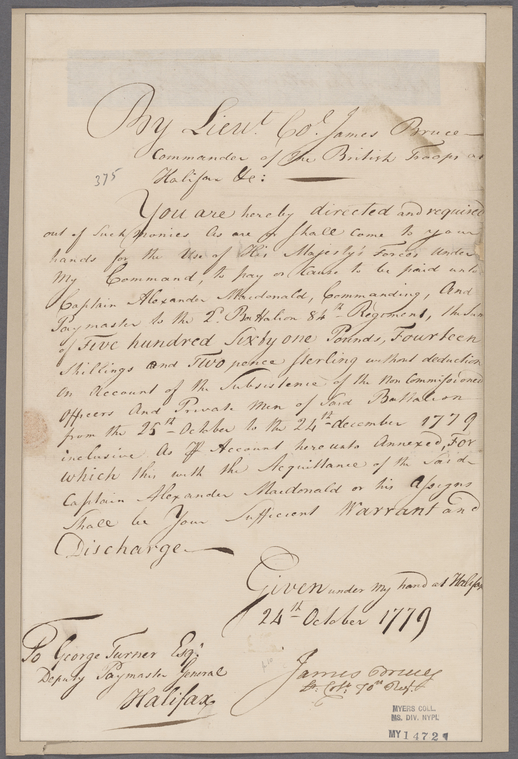 By Lieut. Col. James Bruce
Commander of the British Troops in
Halifax &c:
375
You are hereby directed and required
out of such monies As are or shall come to your
hands for the Use of His Majesty's Forces under
My Command, to pay or cause to be paid unto
Captain Alexander Macdonald, Commanding, And
Paymaster to the 2d. Battalion 84th Regiment, the Sum
of Five hundred Sixty one Pounds, Fourteen
Shillings and Two pence Sterling without deduction
on Account of the Subsistence of the Non Commissioned
Officers And Private Men of Said Battalion
from the 25th October to the 24th december 1779
inclusive As P Account hereunto Annexed, For
which this with the Acquittance of the Said
Captain Alexander Macdonald or his Assigns
Shall be Your Sufficient Warrant and
Discharge
Given under My hand at Halifax
24th October 1779
To George Turner Esqr.
Deputy Paymaster General
Halifax
James Bruce
Lt. Colo. 70th Regt.
MYERS COLL.
MS. DIV. NYPL
MY 1472